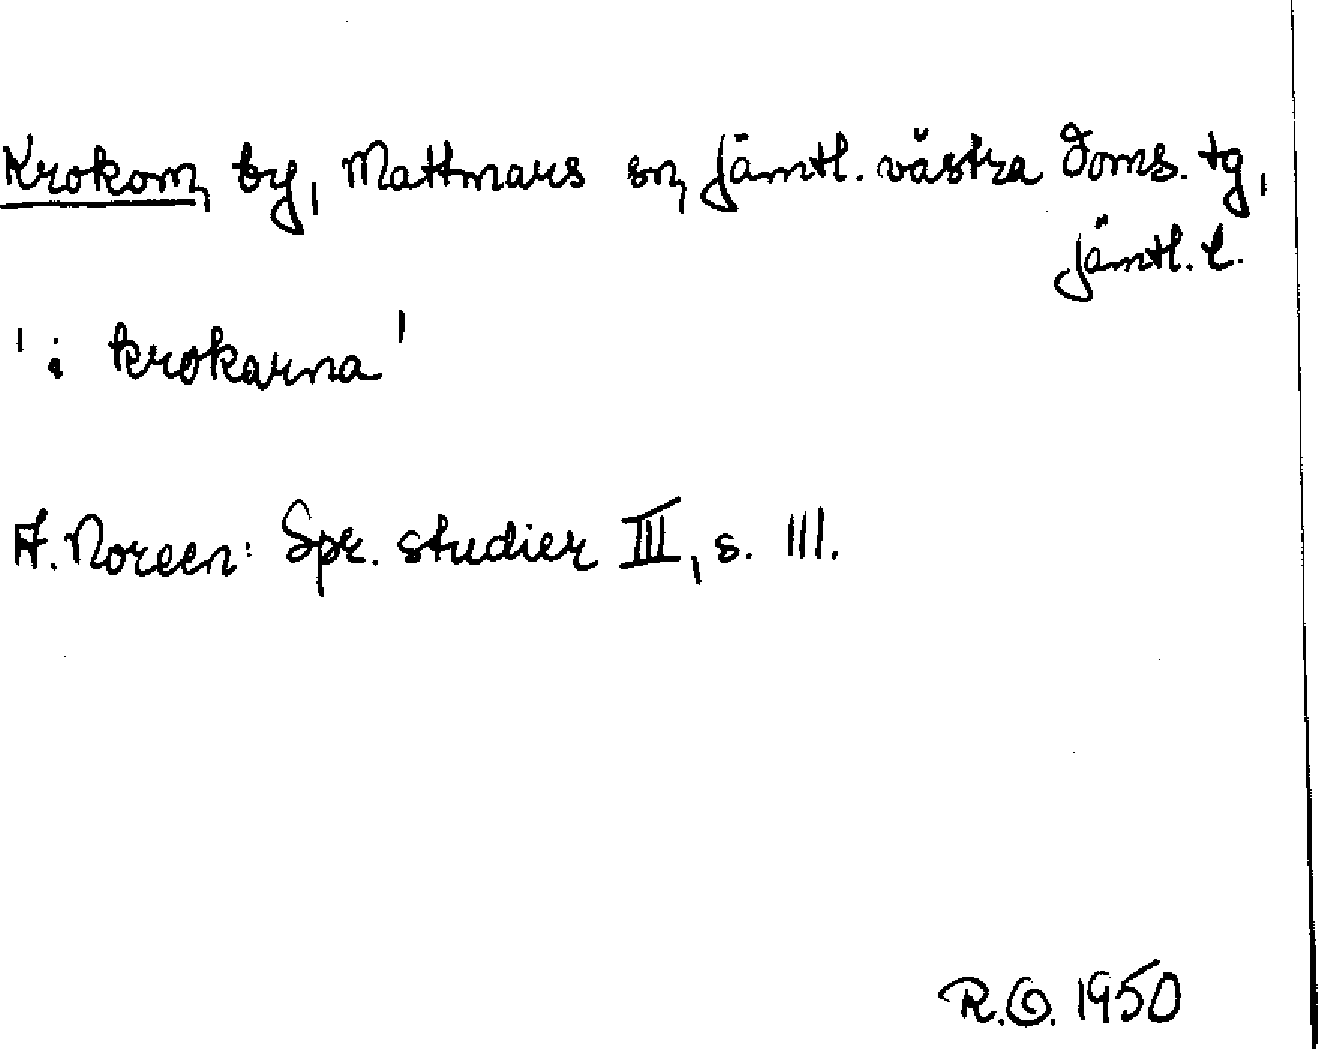 Krokom, by, Mattmars sn, Jämtl. västra doms. tg,
Jämtl. l.
' i krokarna '
A. Noreen: Spr. studier III, s. 111.
R.O. 1950